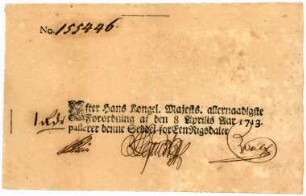 No. 155446
Efter Hans Kongel. Majests. allernaadigste
Forordning af den 8 Aprilis Aar 1713.
passerer denne Sedel for Een Rigsdaler